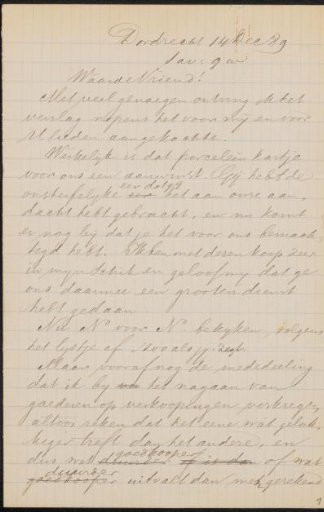 Dordrecht 14 Dec 89
sav: 9 ur
Waarde Vriend!
Met veel genoegen ontving ik het
verslag nopens het voor my en voor
Ulieden aangekochte.
Werkelyk is dat porcelein kastje
voor ons een aanwinst. Gy hebt de
onsterfelyke eer dat gy het aan onze aan-
dacht hebt gebracht, en nu komt
er nog by dat je het voor ons bemach-
tigd hebt. Ik ben met dezen koop zeer
in myn schik en geloof my dat ge
ons daarmee een grooten dienst
hebt gedaan.
Nu No voor No bekyken, volgens
het lystje of zooals jy zegt.
Maar vooraf nog de mededeeling
dat ik by het nagaan van
goederen op verkoopingen verkregen,
altoos reken dat het eene wat geluk-
kiger treft dan het andere, en
dus wat goedkooper of wat
duurder uitvalt dan men gerekend